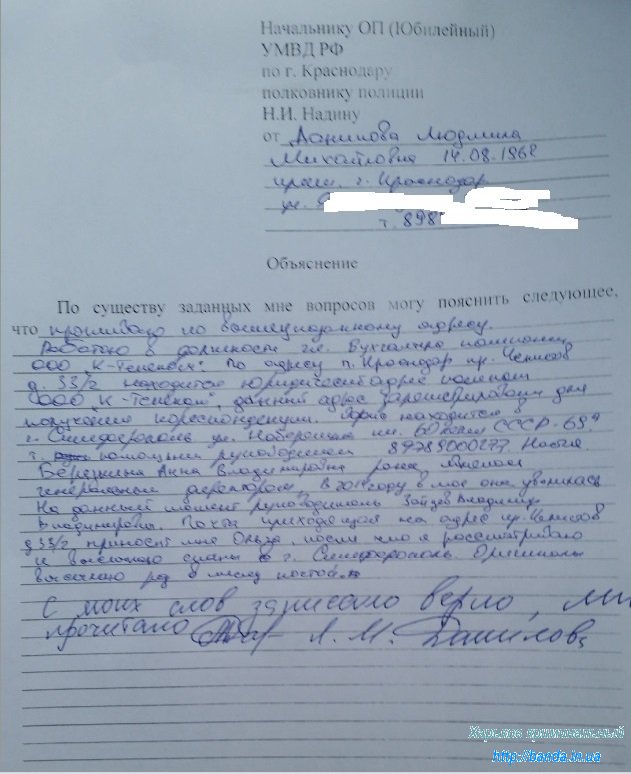 Начальнику ОП (Юбилейный)
УМВД РФ
по г. Краснодару
полковнику полиции
Н.И. Надину
от Данилова Людмила
Михайловна 14.08.1962
прож. г. Краснодар
ул.
т. 898
Объяснение
По существу заданных мне вопросов могу пояснить следующее,
что проживаю по вышеуказанному адресу.
Работаю в должности гл. бухгалтера компании
ООО "К-Телеком". По адресу г. Краснодар пр. Чекистов
д. 33/2 находится юридический адрес компании
ООО "К-Телеком", данный адрес зарегистрирован для
получения кореспонденции. Офис находится в
г. Симферополь ул. Набережная им. 60 летия СССР-69
т. помощник руководителя 89789000277 Настя.
Бережная Анна Владимировна ранее являлась
генеральным директором, в 2017 году она уволилась
На данный момент руководитель Зайцев Владимир
Владимирович. Почту приходящую на адрес пр. Чекистов
д 33/2 приносит мне Ольга, после чего я рассматриваю
и высылаю сканы в г. Симферополь. Оригиналы
высылаю раз в месяц
С моих слов записано верно, мн
прочитано Л. М. Данилова
Хирано криптованный
http://banda.in.ua